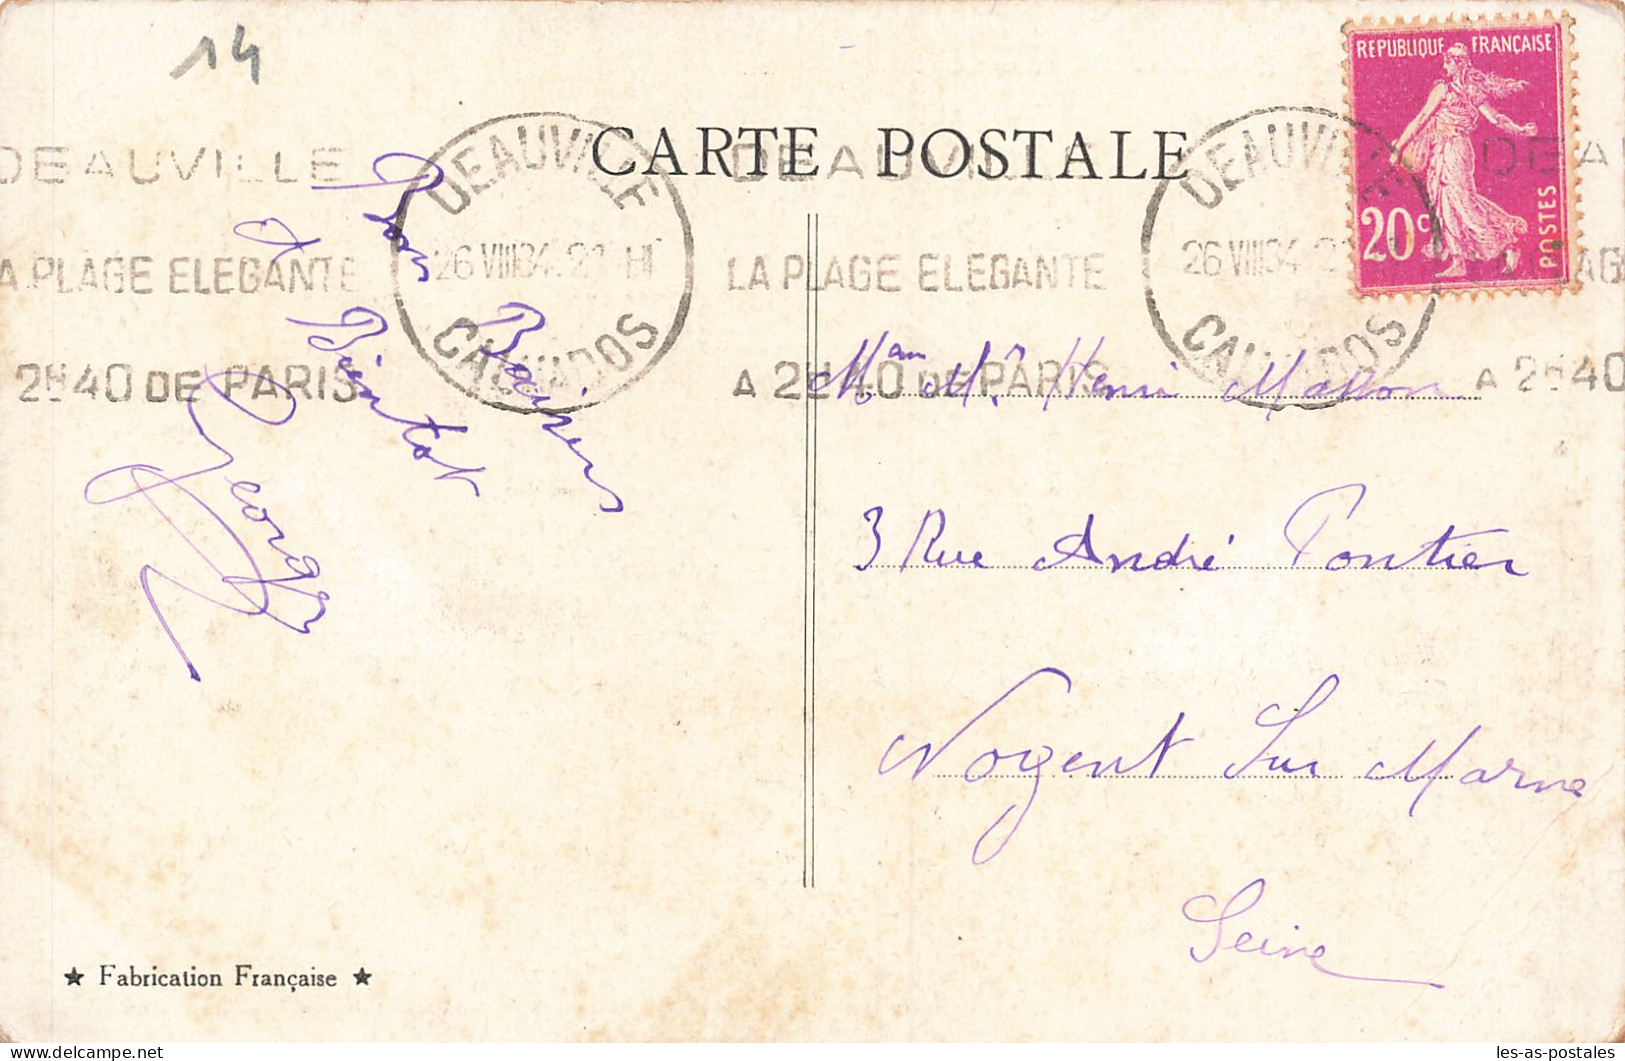 14
REPUBLIQUE FRANÇAISE
20c
POSTES
CARTE POSTALE
DEAUVILLE
LA PLAGE ELEGANTE
A 2H40 DE PARIS
DEAUVILLE
26 VIII 34
CALVADOS
DEAUVILLE
A PLAGE ELEGANTE
2H40 DE PARIS
DEAUVILLE
26 VIII 34
CALVADOS
DEA
AG
A 2H40
Bons Baisers
A
Bientot
Georges
Mr Henri
3 Rue André Pontier
Nogent Sur Marne
Seine
★ Fabrication Française ★
les-as-postales
delcampe.net